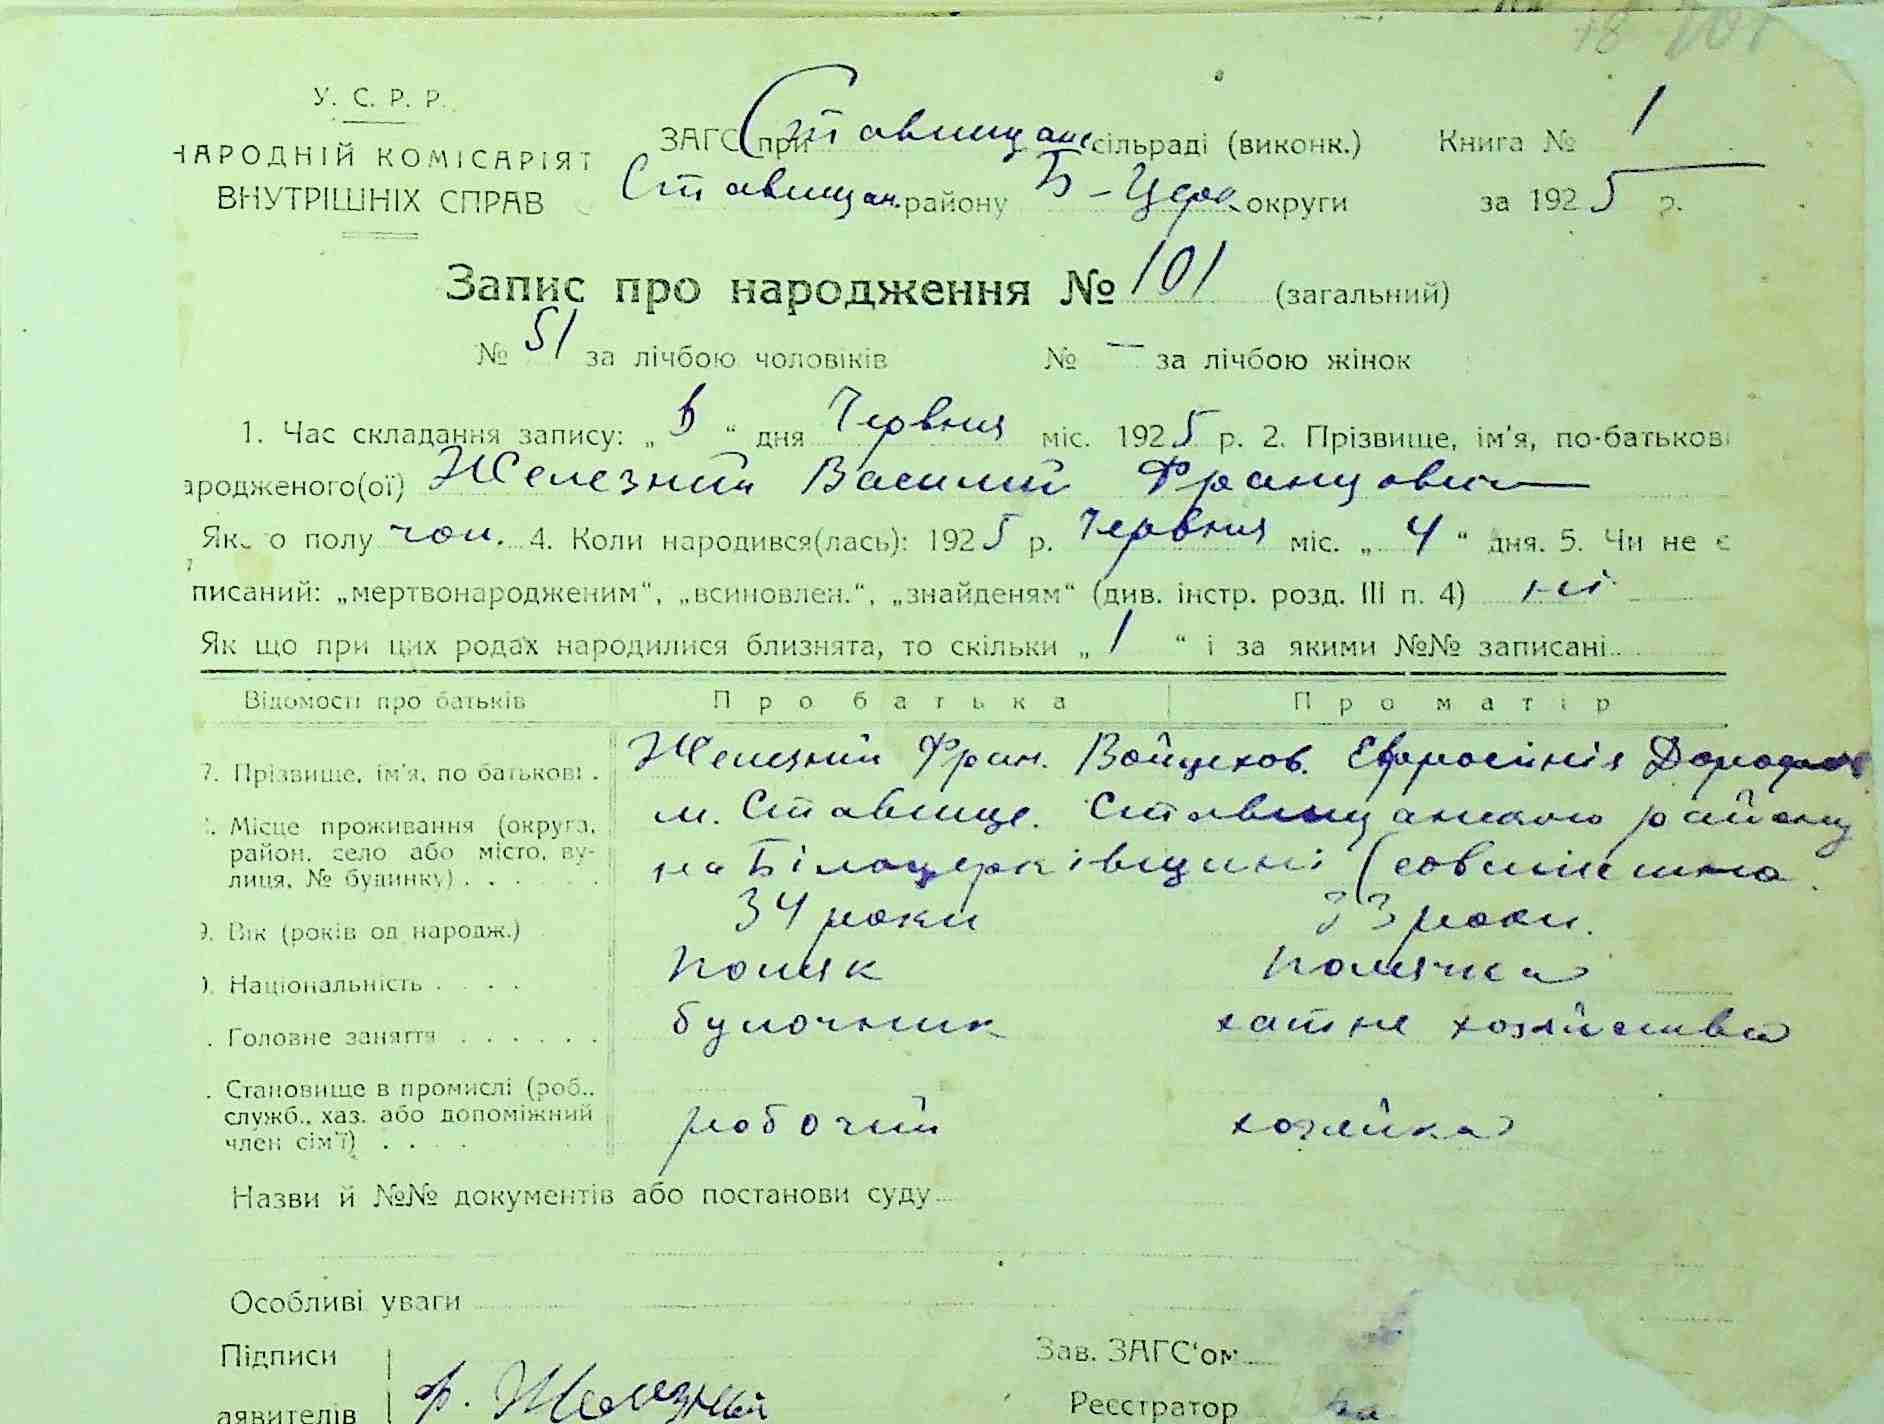 У. С. Р. Р.
НАРОДНІЙ КОМІСАРІЯТ
ВНУТРІШНІХ СПРАВ
ЗАГС при Ставищан. сільраді (виконк.) Книга № 1
Ставищан. району Б-Церк. округи за 1925 р.
Запис про народження № 101 (загальний)
№ 51 за лічбою чоловіків № — за лічбою жінок
1. Час складання запису: „ “ дня Червня міс. 1925 р. 2. Прізвище, ім'я, по-батькові
ародженого(ої) Железний Василий Францович
Як о полу чол. 4. Коли народився(лась): 1925 р. Червня міс. „ 4 “ дня. 5. Чи не є
писаний: „мертвонародженим“, „всиновлен.“, „знайденям“ (див. інстр. розд. III п. 4) ні
Як що при цих родах народилися близнята, то скільки „ 1 “ і за якими №№ записані
Відомості про батьків Про батька Про матір
7. Прізвище, ім'я, по батькові . Железний Фран. Войцехов. Евфросинія
Місце проживання (округа, м. Ставище. Ставищанского району
район, село або місто, ву-
лиця, № будинку) . . . . . . на Білоцерківщині (совмістно
9. Вік (років од народж.) 34 роки 33 роки.
). Національність . . . . поляк полячка
. Головне заняття . . . . . . булочник хатне хозяйство
. Становище в промислі (роб.,
служб., хаз. або допоміжний
член сім'ї) . . . . робочий хозяйка
Назви й №№ документів або постанови суду
Особливі уваги
Підписи Зав. ЗАГС'ом
аявителів Ф. Железний Реєстратор